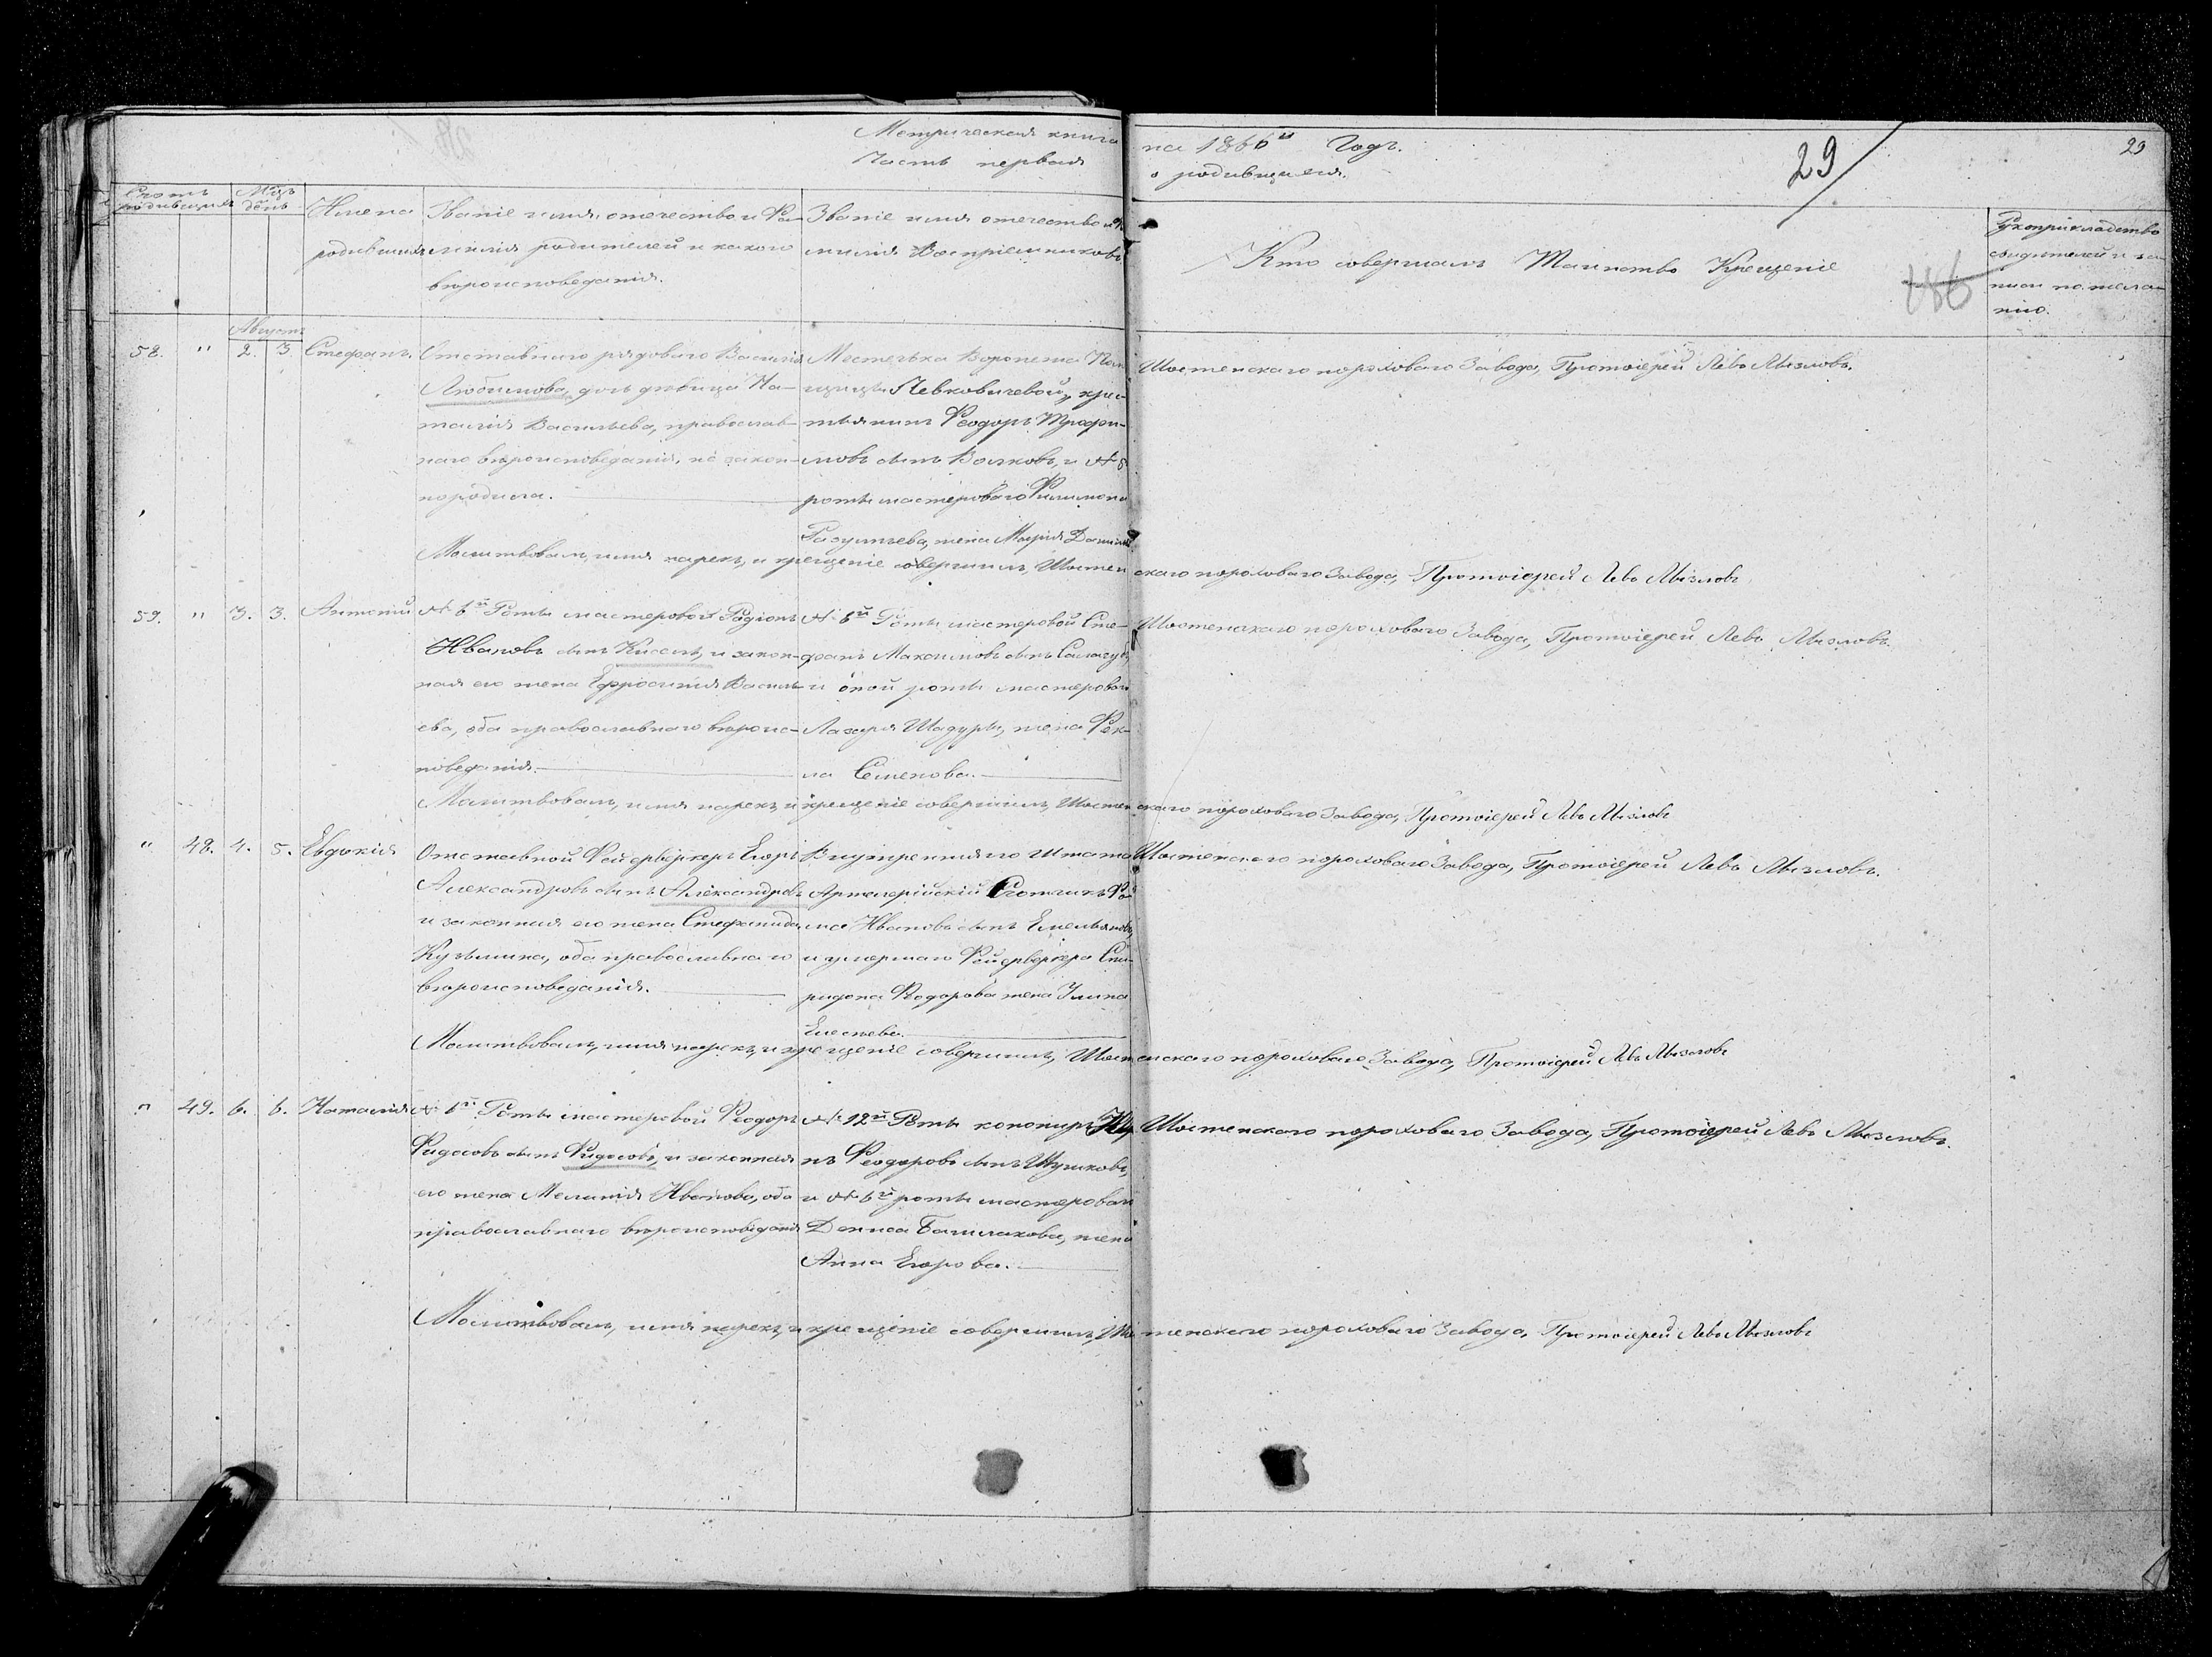 Метрическая книга на 1866й Годъ.
Часть первая о родившихся.
29
29
Счетъ родившихся
Мцъ день
Имена родившихся
Званіе имя, отечество и Фа-
милія родителей и какого
вѣроисповеданія.
Званіе имя отечество и Фа-
милія Воспріемниковъ
Кто совершалъ Таинство Крещеніе
Рукоприкладство
свидѣтелей и за-
писи по жела-
нію.
Августъ
58. " 2. 3. Стефанъ.
Отставнаго рядоваго Василія
Любимова, дочь дѣвица На-
талія Васильева, православ-
наго вѣроисповеданія, не закон-
но родила.
Местечка Воронежа
Левковичевой, крес-
тьянинъ Феодоръ Трофи-
мовъ сынъ Волковъ, и № 8
роты мастероваго Филимона
жена Марія
Шостенскаго пороховаго Завода, Протоіерей Левъ Мызловъ.
Молитвовалъ, имя нарекъ, и крещеніе совершилъ, Шостенскаго пороховаго Завода, Протоіерей Левъ Мызловъ
59. " 3. 3. Антоній
№ 6й Роты мастеровой Родіонъ
Ивановъ сынъ Киселъ, и закон-
ная его жена Ефросинія Василь-
ева, оба православнаго вѣроис-
поведанія.
№ 6й Роты мастеровой Сте-
фанъ Максимовъ сынъ
и оной роты мастероваго
Лазаря Шадуры, жена Фек-
ла Семенова.
Шостенскаго пороховаго Завода, Протоіерей Левъ Мызловъ.
Молитвовалъ, имя нарекъ, и крещеніе совершилъ, Шостенскаго пороховаго Завода, Протоіерей Левъ Мызловъ
" 48. 4. 5. Евдокія
Отставной Фейерверкеръ Егоръ
Александровъ сынъ Александровъ
и законная его жена Стефанида
Кузьмина, оба православнаго
вѣроисповеданія.
Внутренняго штата
Артилерійскій
Ивановъ сынъ Емельяновъ,
и умершаго Фейерверкера Спи-
ридона Федорова жена
Елесѣева.
Шостенскаго пороховаго Завода, Протоіерей Левъ Мызловъ.
Молитвовалъ, имя нарекъ, и крещеніе совершилъ, Шостенскаго пороховаго Завода, Протоіерей Левъ Мызловъ
" 49. 6. 6. Наталія
№ 6й Роты мастеровой Феодоръ
Фидосовъ сынъ Фидосовъ, и законная
его жена Меланія Иванова, оба
православнаго вѣроисповеданія
№ 12й Роты
нъ Феодоровъ сынъ Шушковъ,
и № 6й роты мастероваго
Дениса Башлакова, жена
Анна Егорова.
Шостенскаго пороховаго Завода, Протоіерей Левъ Мызловъ.
Молитвовалъ, имя нарекъ, и крещеніе совершилъ, Шостенскаго пороховаго Завода, Протоіерей Левъ Мызловъ